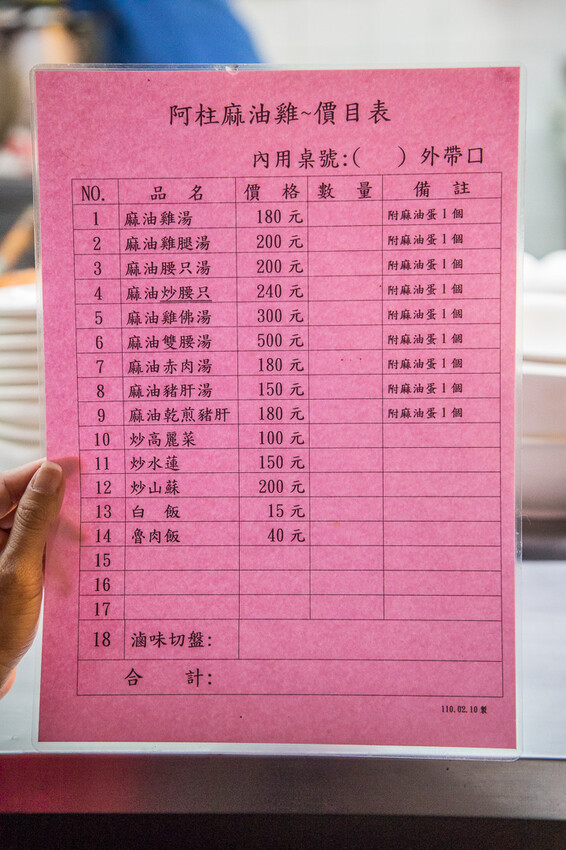 阿柱麻油雞~價目表
內用桌號:(    ) 外帶口
NO. 品 名 價 格 數 量 備 註
1 麻油雞湯 180 元 附麻油蛋 1 個
2 麻油雞腿湯 200 元 附麻油蛋 1 個
3 麻油腰只湯 200 元 附麻油蛋 1 個
4 麻油炒腰只 240 元 附麻油蛋 1 個
5 麻油雞佛湯 300 元 附麻油蛋 1 個
6 麻油雙腰湯 500 元 附麻油蛋 1 個
7 麻油赤肉湯 180 元 附麻油蛋 1 個
8 麻油豬肝湯 150 元 附麻油蛋 1 個
9 麻油乾煎豬肝 180 元 附麻油蛋 1 個
10 炒高麗菜 100 元
11 炒水蓮 150 元
12 炒山蘇 200 元
13 白 飯 15 元
14 魯肉飯 40 元
15
16
17
18 滷味切盤:
合 計:
110.02.10 製